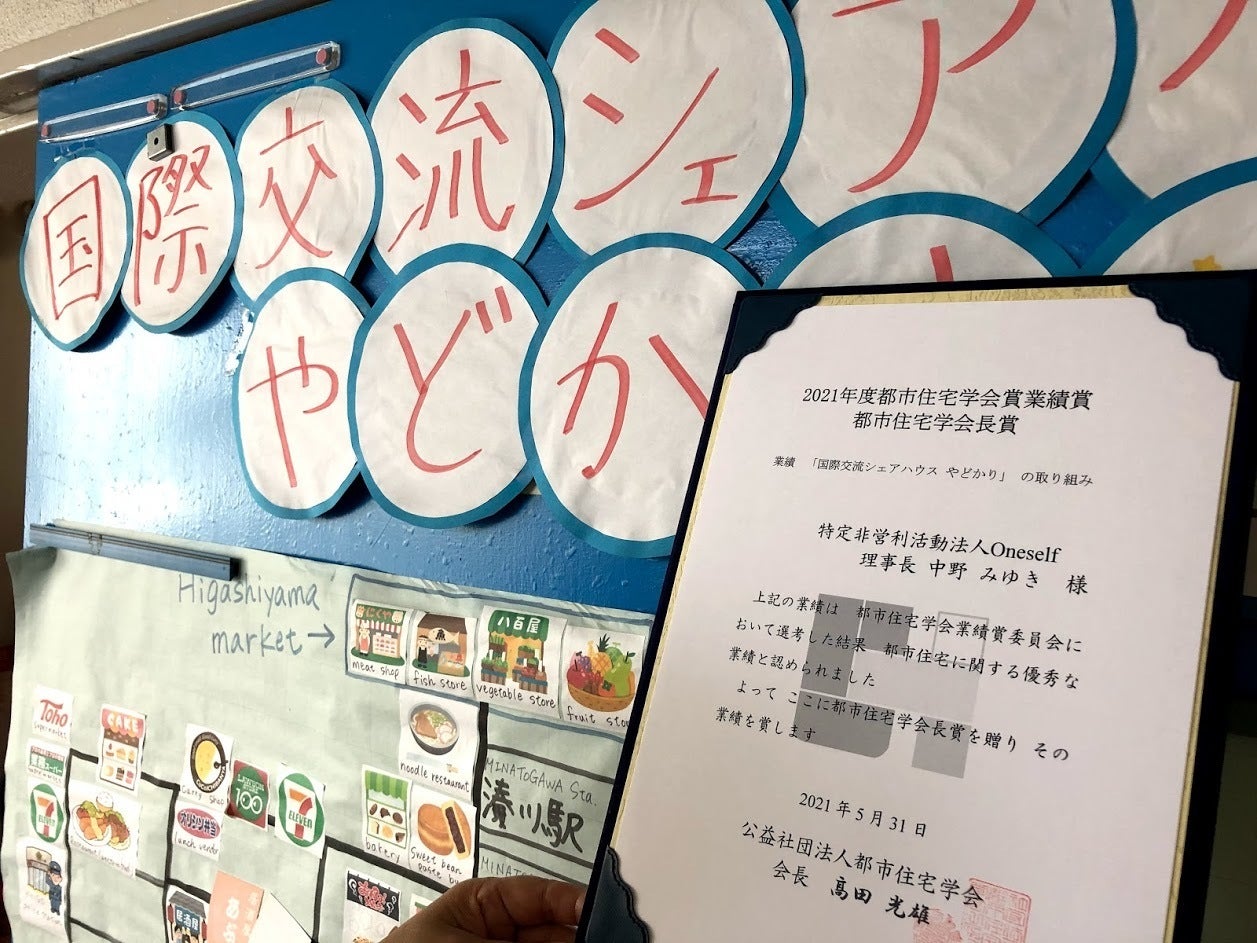 国際交流シェア
やどか
2021年度都市住宅学会賞業績賞
都市住宅学会長賞
業績 「国際交流シェアハウス やどかり」 の取り組み
特定非営利活動法人Oneself
理事長 中野 みゆき 様
上記の業績は 都市住宅学会業績賞委員会に
おいて選考した結果 都市住宅に関する優秀な
業績と認められました
よって ここに都市住宅学会長賞を贈り その
業績を賞します
2021年5月31日
公益社団法人都市住宅学会
会長 髙田 光雄
Higashiyama
market→
八百屋
meat shop
fish store
vegetable store
fruit
noodle restaurant
MINATOGAWA Sta.
湊川駅
Toho
Supermarket
CAKE
curry shop
100
7
ELEVEN
7
ELEVEN
オリジン弁当
lunch vendor
bakery
sweet bean
paste
居酒屋